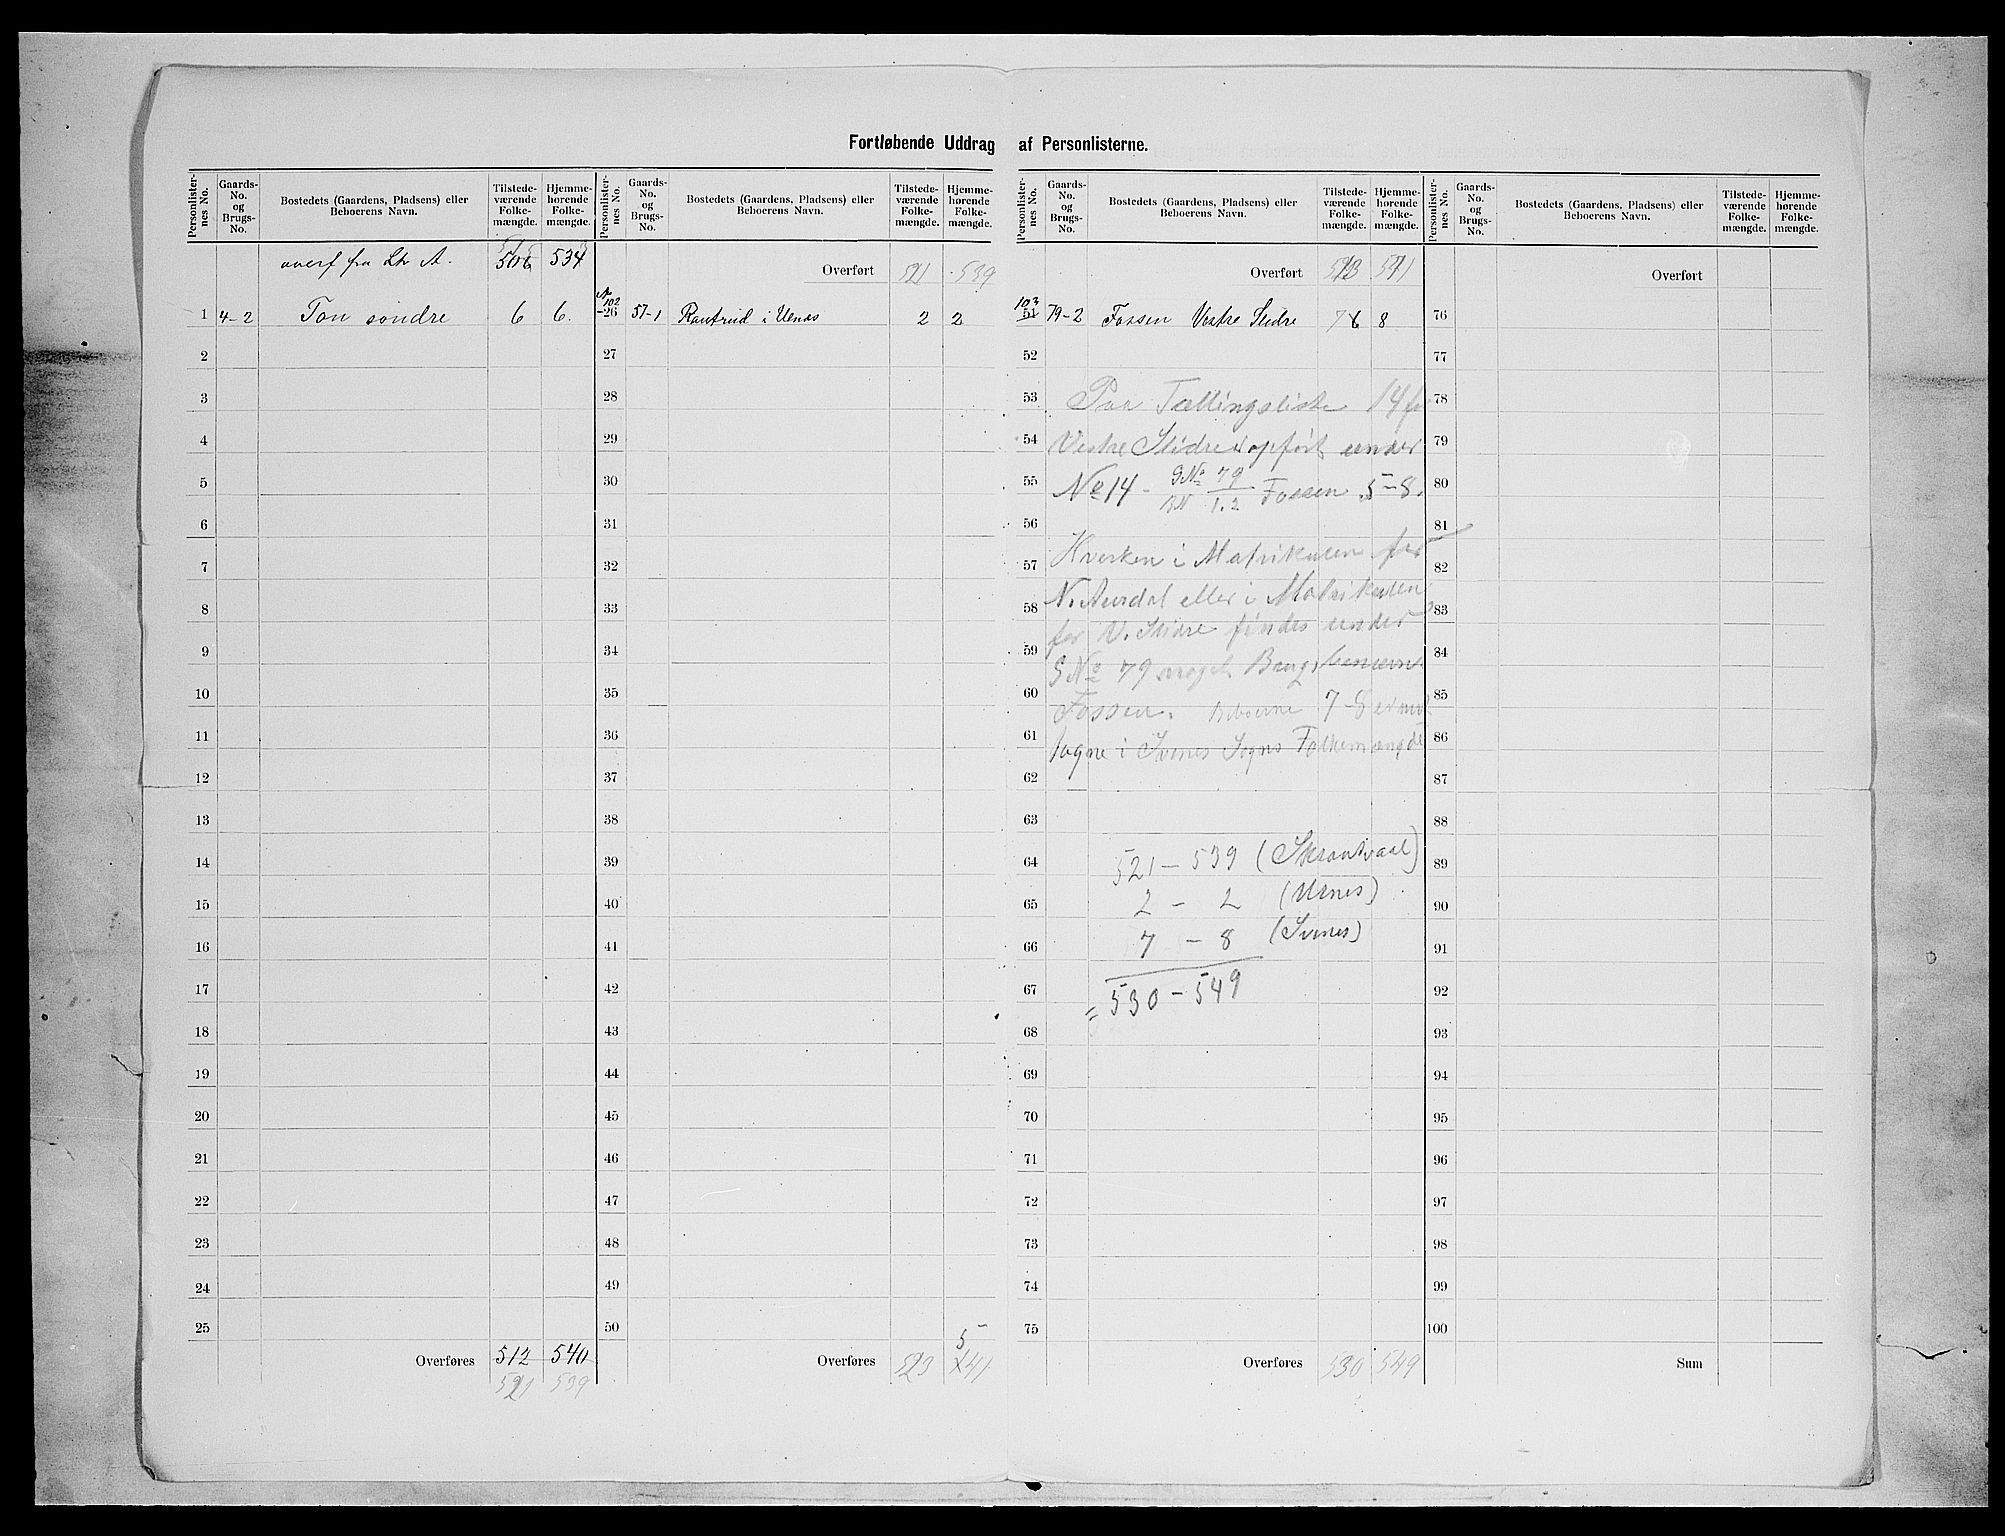 Fortløbende Uddrag af Personlisterne.
Personlister-nes No. Gaards-No. og Brugs-No. Bostedets (Gaardens, Pladsens) eller Beboerens Navn. Tilstede-værende Folke-mængde. Hjemme-hørende Folke-mængde.
overf fra Lit A. 534
1 4-2 Ton söndre 6 6.
2
3
4
5
6
7
8
9
10
11
12
13
14
15
16
17
18
19
20
21
22
23
24
25
Overføres 512 540
521 539
Personlister-nes No. Gaards-No. og Brugs-No. Bostedets (Gaardens, Pladsens) eller Beboerens Navn. Tilstede-værende Folke-mængde. Hjemme-hørende Folke-mængde.
Overført 521 539
102
26 57-1 Rautrud i Ulnæs 2 2
27
28
29
30
31
32
33
34
35
36
37
38
39
40
41
42
43
44
45
46
47
48
49
50
5
Overføres 523 541
Personlister-nes No. Gaards-No. og Brugs-No. Bostedets (Gaardens, Pladsens) eller Beboerens Navn. Tilstede-værende Folke-mængde. Hjemme-hørende Folke-mængde.
Overført 523 541
103
51 79-2 Fossen Vestre Slidre 7 8
52
53 Paa Tællingsliste 14 for
54 Vestre Slidre opført under
55 No 14 - GNo 79 BN 1.2 Fossen 5-8.
56
57 Hverken i Matrikulen for
58 N. Aurdal eller i Matrikulen
59 for V. Slidre findes under
GNo 79 noget Brug, benævnt
60 Fossen. Beboerne 7-8 er med
61 tagne i Svenes Sogns Folkemængde
62
63
64 521 - 539 (Skrautvaal)
65 2 - 2 (Ulnes)
66 7 - 8 (Svenes)
67 = 530 - 549
68
69
70
71
72
73
74
75
Overføres 530 549
Personlister-nes No. Gaards-No. og Brugs-No. Bostedets (Gaardens, Pladsens) eller Beboerens Navn. Tilstede-værende Folke-mængde. Hjemme-hørende Folke-mængde.
Overført
76
77
78
79
80
81
82
83
84
85
86
87
88
89
90
91
92
93
94
95
96
97
98
99
100
Sum